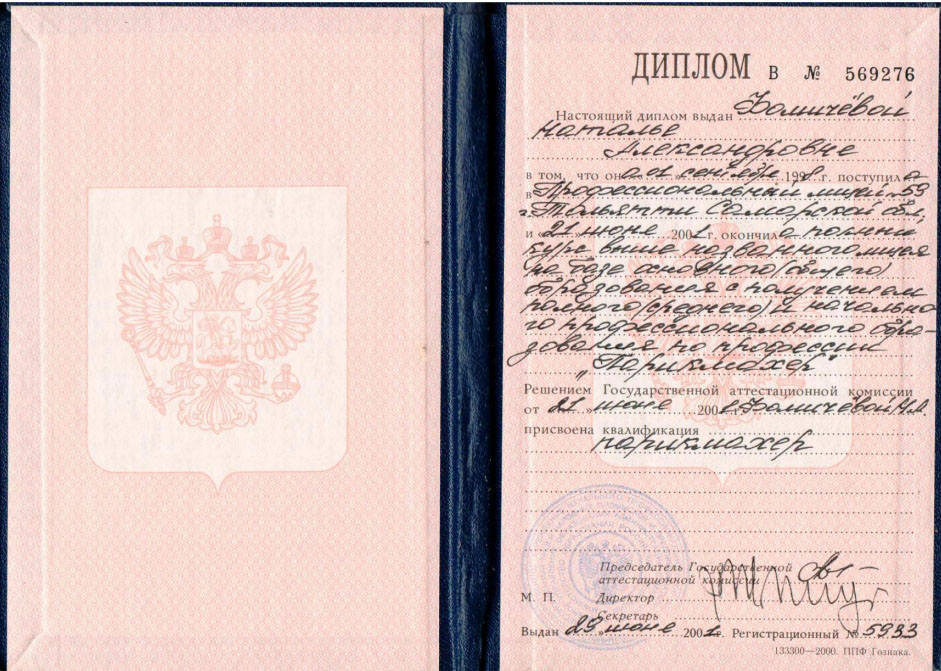 ДИПЛОМ В № 569276
Настоящий диплом выдан Фомичёвой
Наталье
Александровне
в том, что она „01 сентября 1998 г. поступила
в Профессиональный лицей № 59
г. Тольятти Самарской обл.
и «21» июне 2001 г. окончила полный
курс выше названного лицея
на базе основного (общего)
образования с получением
полного (среднего) и начально
го профессионального обра-
зования по профессии
„Парикмахер"
Решением Государственной аттестационной комиссии
от «21» июне 2001 г. Фомичёвой Н.А.
присвоена квалификация
парикмахер
Председатель Государственной
аттестационной комиссии
М. П. Директор
Секретарь
Выдан 29 июне 2001 г. Регистрационный № 5933
133300—2000. ППФ Гознака.